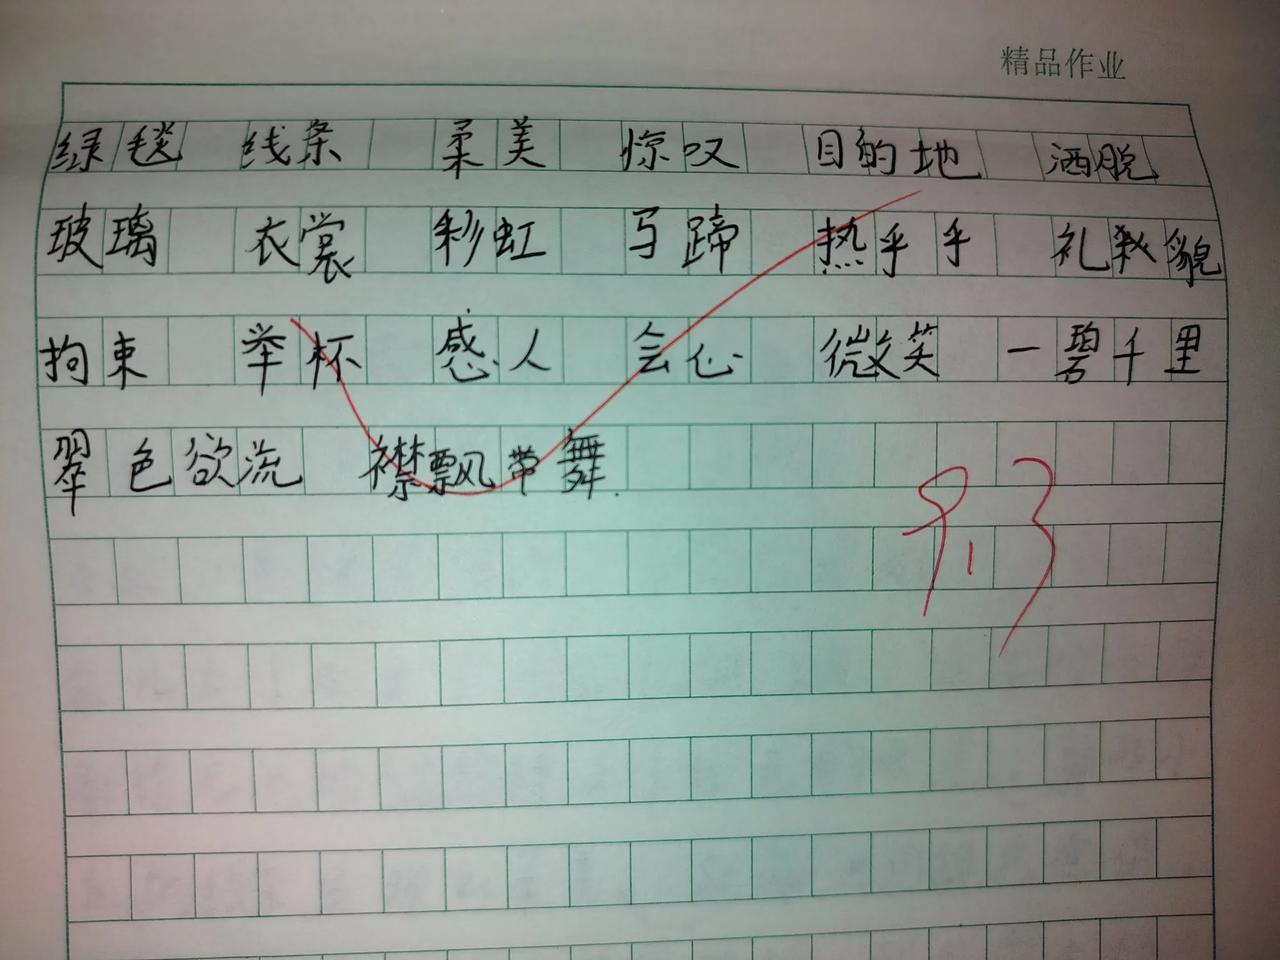 精品作业
绿毯 线条 柔美 惊叹 目的地 洒脱
玻璃 衣裳 彩虹 马蹄 热乎乎 礼貌
拘束 举杯 感人 会心 微笑 一碧千里
翠色欲流 襟飘带舞.
9.3